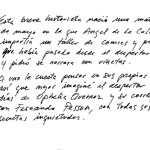 Esta breve historieta nació una mañ
de marzo en la que Angel de la Cal
impartía un taller de comics y pr
que había pasado desde el despertar
y pidió se narrara con viñetas.
A uno le cuesta pensar en sus propias
así que mejor imaginé el despertar
días de Ophelia Queiroz y su corre
con Fernando Pessoa, con todas su
secretas inquietudes.